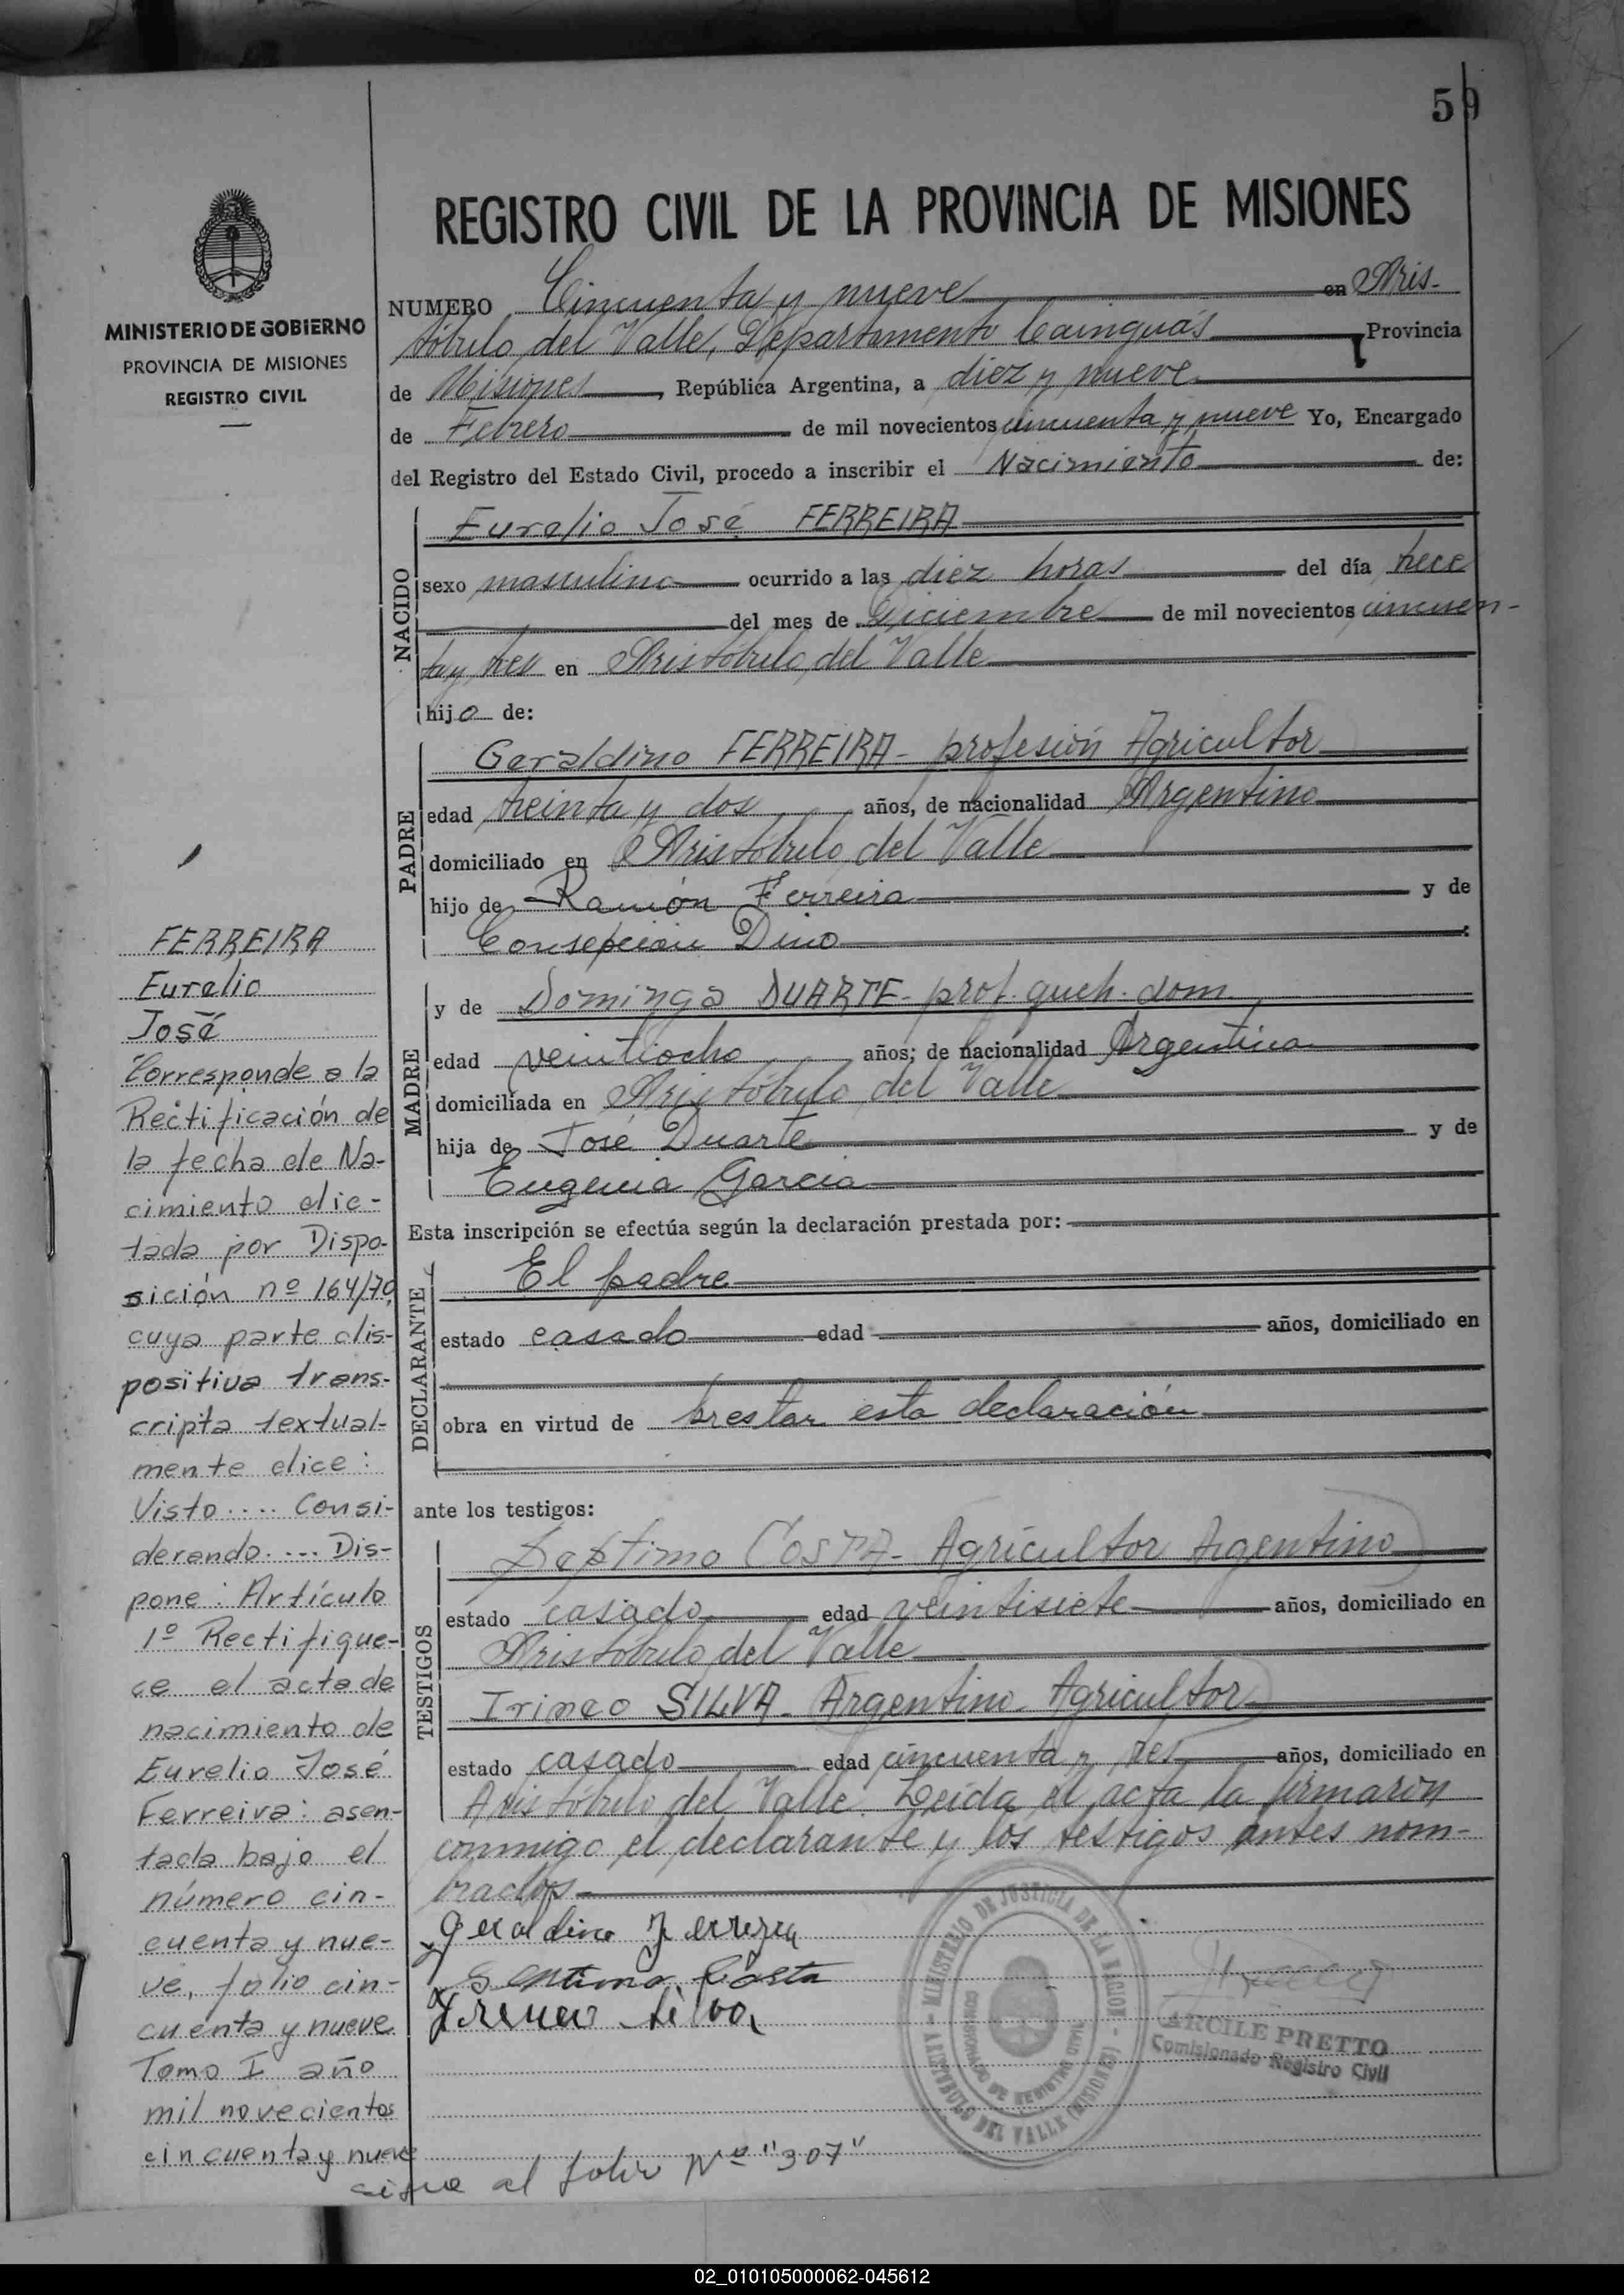 59
REGISTRO CIVIL DE LA PROVINCIA DE MISIONES
MINISTERIO DE GOBIERNO
PROVINCIA DE MISIONES
REGISTRO CIVIL
NUMERO Cincuenta y nueve en Aris-
tóbulo del Valle, Departamento Cainguás Provincia
de Misiones, República Argentina, a diez y nueve
de Febrero de mil novecientos cincuenta y nueve Yo, Encargado
del Registro del Estado Civil, procedo a inscribir el Nacimiento de:
NACIDO
Eurelio José FERREIRA
sexo masculino ocurrido a las diez horas del día trece
del mes de Diciembre de mil novecientos cincuen-
ta y tres en Aristóbulo del Valle
hijo de:
PADRE
Geraldino FERREIRA - profesión Agricultor
edad treinta y dos años, de nacionalidad Argentino
domiciliado en Aristóbulo del Valle
hijo de Ramón Ferreira y de
Consepcion Dino
MADRE
y de Dominga DUARTE - prof. queh. dom.
edad veintiocho años; de nacionalidad Argentina
domiciliada en Aristóbulo del Valle
hija de José Duarte y de
Eugenia Garcia
Esta inscripción se efectúa según la declaración prestada por:
DECLARANTE
El padre
estado casado edad años, domiciliado en
obra en virtud de prestar esta declaración
ante los testigos:
TESTIGOS
Septimo COSTA - Agricultor Argentino
estado casado edad veintisiete años, domiciliado en
Aristóbulo del Valle
Irineo SILVA - Argentino - Agricultor
estado casado edad cincuenta y tres años, domiciliado en
Aristóbulo del Valle. Leída el acta la firmaron
conmigo el declarante y los testigos antes nom-
brados.-
Geraldino Ferreira
Septimo Costa
Irineo Silva
MINISTERIO DE JUSTICIA DE LA NACION - ARISTOBULO DEL VALLE (MISIONES)
ARCILE PRETTO
Comisionado Registro Civil
FERREIRA
Eurelio
José
Corresponde a la
Rectificación de
la fecha de Na-
cimiento dic-
tada por Dispo-
sición nº 164/70
cuya parte dis-
positiva trans-
cripta textual-
mente dice:
Visto .... Consi-
derando .... Dis-
pone: Artículo
1º Rectifique-
ce el acta de
nacimiento de
Eurelio José
Ferreira: asen-
tada bajo el
número cin-
cuenta y nue-
ve, folio cin-
cuenta y nueve
Tomo I año
mil novecientos
cincuenta y nueve
sigue al folio Nº "307"
02_010105000062-045612